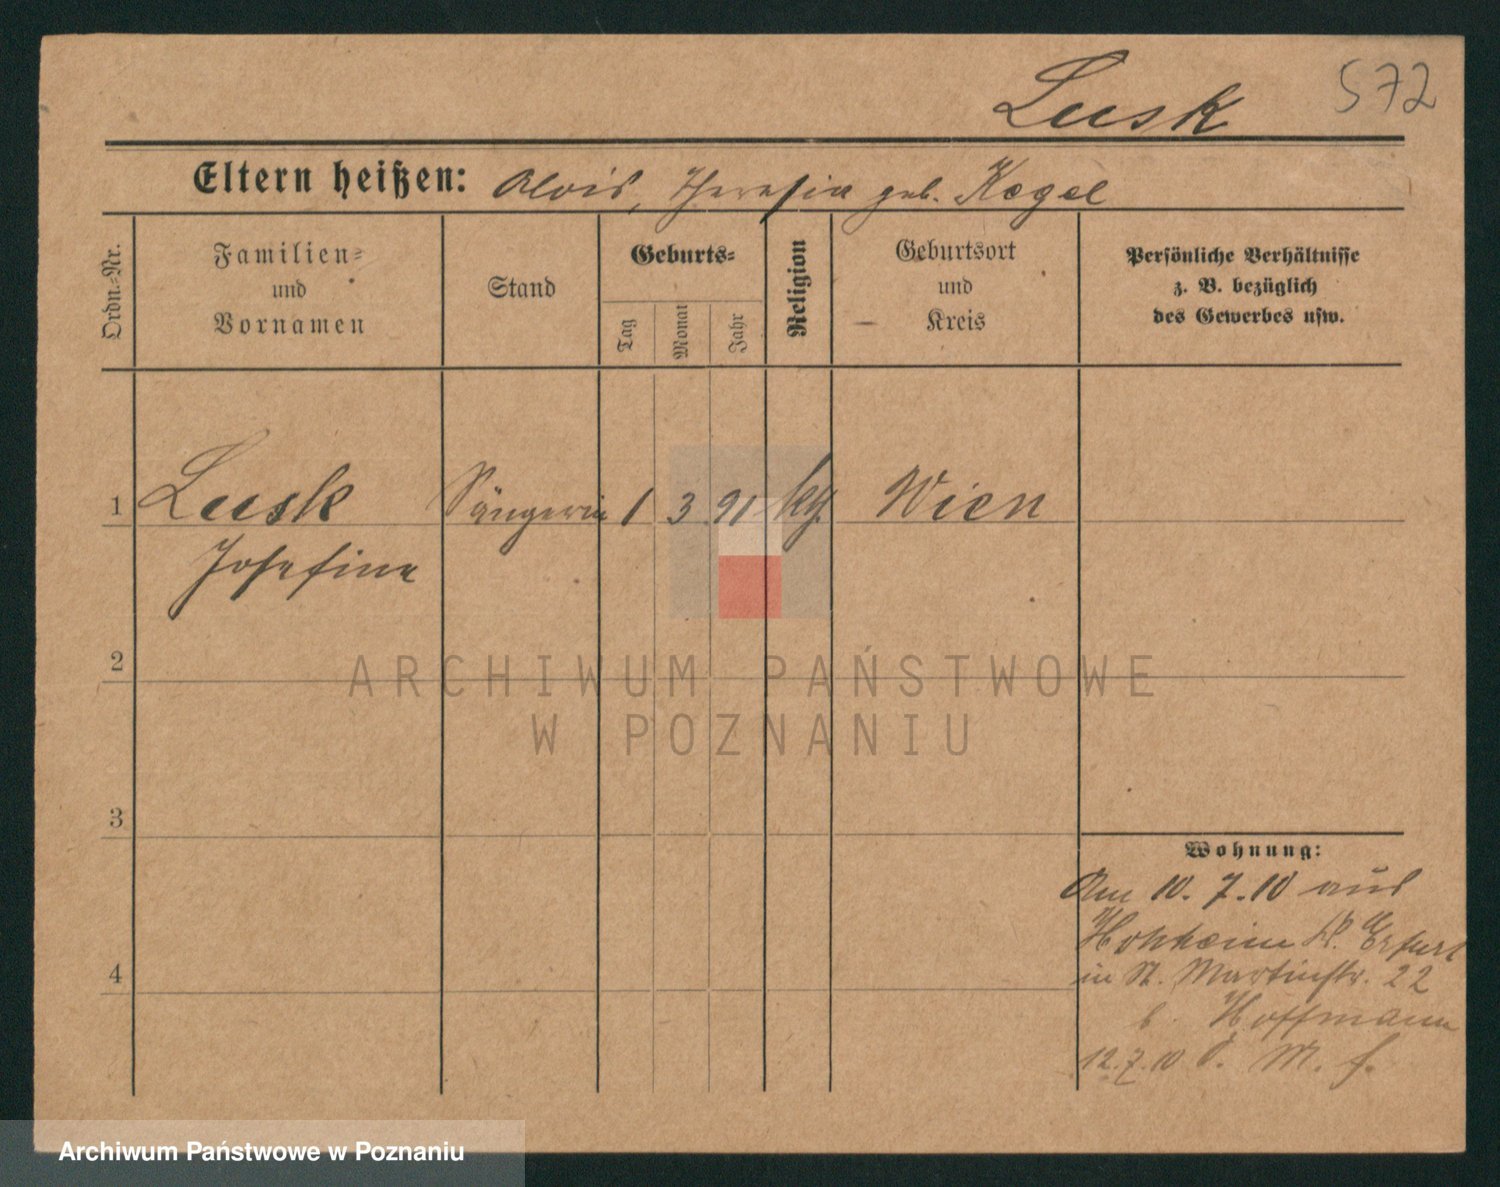 Lusk 572
Eltern heißen: Alois, Theresia geb. Kogel
Ordn.=Nr.
Familien=
und
Vornamen
Stand
Geburts=
Tag
Monat
Jahr
Religion
Geburtsort
und
Kreis
Persönliche Verhältnisse
z. B. bezüglich
des Gewerbes usw.
1 Lusk Sängerin 1 3 91 kg. Wien
Josefine
2
3
4
Wohnung:
Am 10.7.10 aus
K. Erfurt
in St. Martinstr. 22
b. Hoffmann
12.7.10
ARCHIWUM PAŃSTWOWE
W POZNANIU
Archiwum Państwowe w Poznaniu